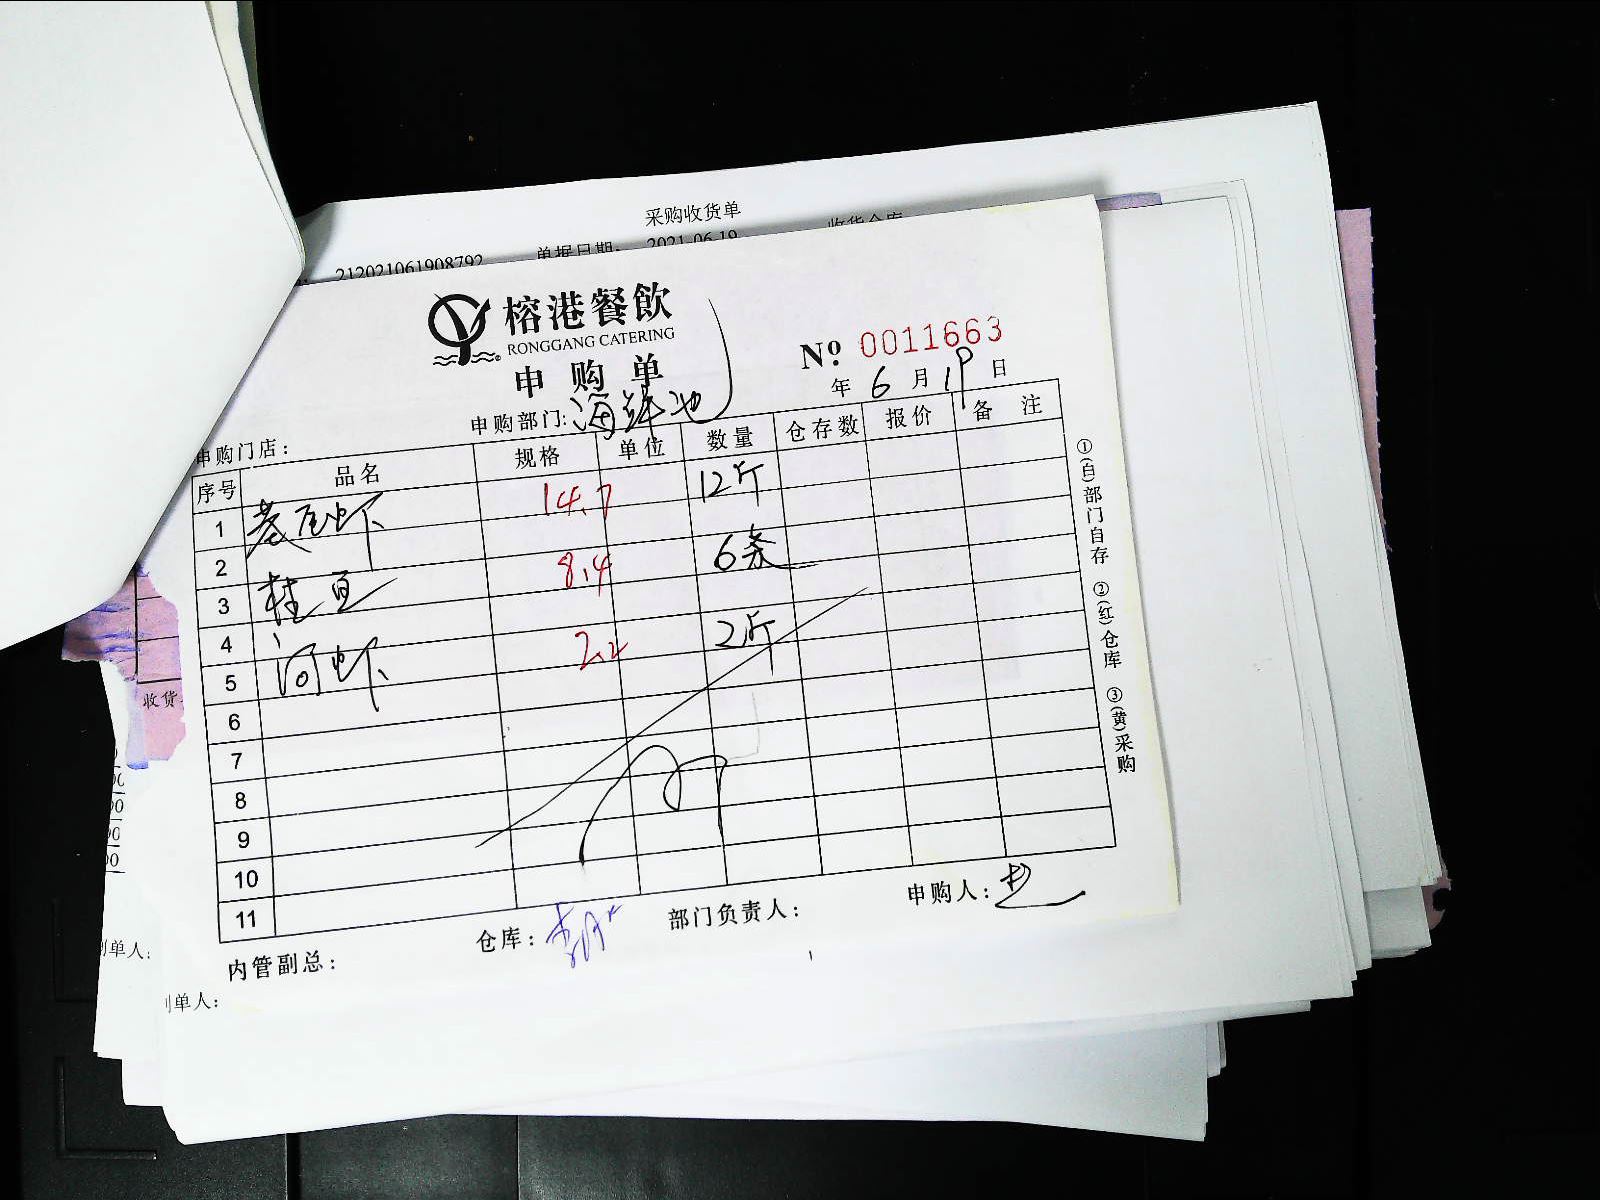 采购收货单
212021061908792 单据日期: 2021-06-19 收货仓库
榕港餐飲
RONGGANG CATERING
申购单
№ 0011663
年 6 月 19 日
申购部门: 海鲜池
申购门店:
序号 品名 规格 单位 数量 仓存数 报价 备注
1 基尾虾 14.7 12斤
2
3 桂鱼 8.4 6条
4
5 河虾 2.2 2斤
6
7
8
9
10
11
①(白)部门自存 ②(红)仓库 ③(黄)采购
内管副总: 仓库: 部门负责人: 申购人:
收货
制单人:
制单人: